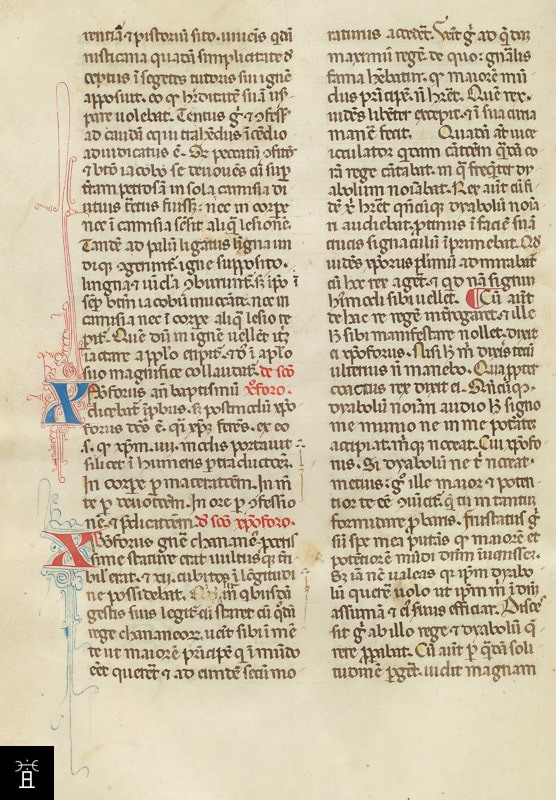 ceptus i segetes tutoris sui igne
apposuit. eo qr hereditate sua us
pare volebat. Tentus g̃ ⁊ ꝯfess
ad cauda equi trahedus icedio
adiudicatus e. Se peccatu ꝯfites
⁊ bto iacobo se deuoues cu sup
terram petrosa in sola camisia di
nec i camisia sesit aliq lesione.
Tande ad palu ligatus ligna un
diq aggerut. igne supposito.
ligna ⁊ uicla ꝯburunt. s ipo i
sep btm iacobu inuocate. nec in
camisia nec i corpe aliq lesio re
pit. Que du in igne uellet itz
iactare a pplo eripit. ⁊ d i aplo
suo magnifice collaudat. de sco
Xpoforus an baptismu xforo.
dicebat ipbus. s postmodu xpo
forus dcs e. qi xpm feres. ex eo
.s. qr xpm .iiii. modis portauit
scilicet i humeris p traductoem.
In corpe p maceratoem. In mn
te p deuotoem. In ore p ꝯfessio
ne ⁊ pdicatoem. de sco xpoforo.
Xpoforus gne chananeo pceris
sime stature erat uultuq tri
bil erat. ⁊ xii. cubitos i logitudi
ne possidebat. in qbusda
gestis suis legit cu staret cu qda
rege chananeor. uenit sibi i me
te ut maiore pricipe q i mudo
eet quereret ⁊ ad eunde secu mo
raturus accedet. Venit g̃ ad qdaz
maximu rege de quo gnalis
fama hebatur. qr maiore mu
dus pricipe n hret. Que rex
uides libeter excepit. ⁊ i sua curia
mane fecit. Quada at uice
iculator qdam catoem qda co
ra rege catabat. in q freqter dy
abolum noiabat. Rex aut cu fi
de x hret qncuq dyabolu noia
ri audiebat. ptinus i facie sua
crucis signaculu iprimebat. Qd
uides xpoforus plimu admirabat
cu hoc rex aget. ⁊ qd na signum
hmodi sibi uellet. ¶ Cu aut
de hac re rege interrogaret. ⁊ ille
h sibi manifestare nollet. dixit
ei xpoforus. Nisi h m dixeis tecu
ulterius n manebo. Quapropter
coactus rex dixit ei. Qncuq
dyabolu noiari audio h signo
me munio ne in me potate
accipiat. mq noceat. Cui xpofo
rus. Si dyabolu ne t noceat
metuis. g̃ ille maior ⁊ poten
tior te ee ꝯuicit. que tu in tantum
formidare pbaris. frustatus g̃
su spe mea putas qr maiore et
potentiore mudi dnm inuenisse.
Sz ia nc ualeas qr ipm dyabo
lu querere uolo ut ipm m i dnm
assuma ⁊ ei suus efficiar. Disces
sit g̃ ab illo rege ⁊ dyabolu q
rere ppabat. Cu aut p qda soli
tudine pget. uidit magnam